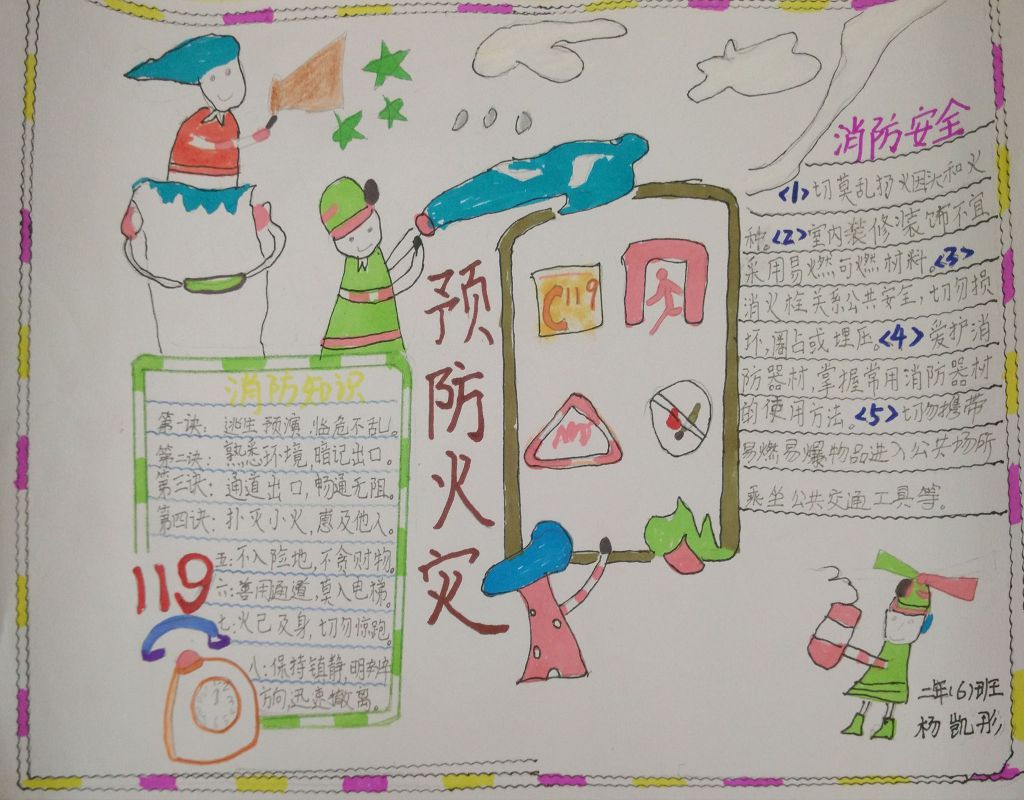 消防安全
<1>切莫乱扔烟头和火
种。<2>室内装修装饰不宜
采用易燃可燃材料。<3>
消火栓关系公共安全,切勿损
坏,圈占或埋压。<4>爱护消
防器材,掌握常用消防器材
的使用方法。<5>切勿携带
易燃易爆物品进入公共场所
乘坐公共交通工具等。
预防火灾
119
消防知识
第一诀:逃生预演,临危不乱。
第二诀:熟悉环境,暗记出口。
第三诀:通道出口,畅通无阻。
第四诀:扑灭小火,惠及他人。
五:不入险地,不贪财物。
六:善用通道,莫入电梯。
七:火已及身,切勿惊跑。
八:保持镇静,明辨
方向,迅速撤离。
119
二年(6)班
杨凯彤